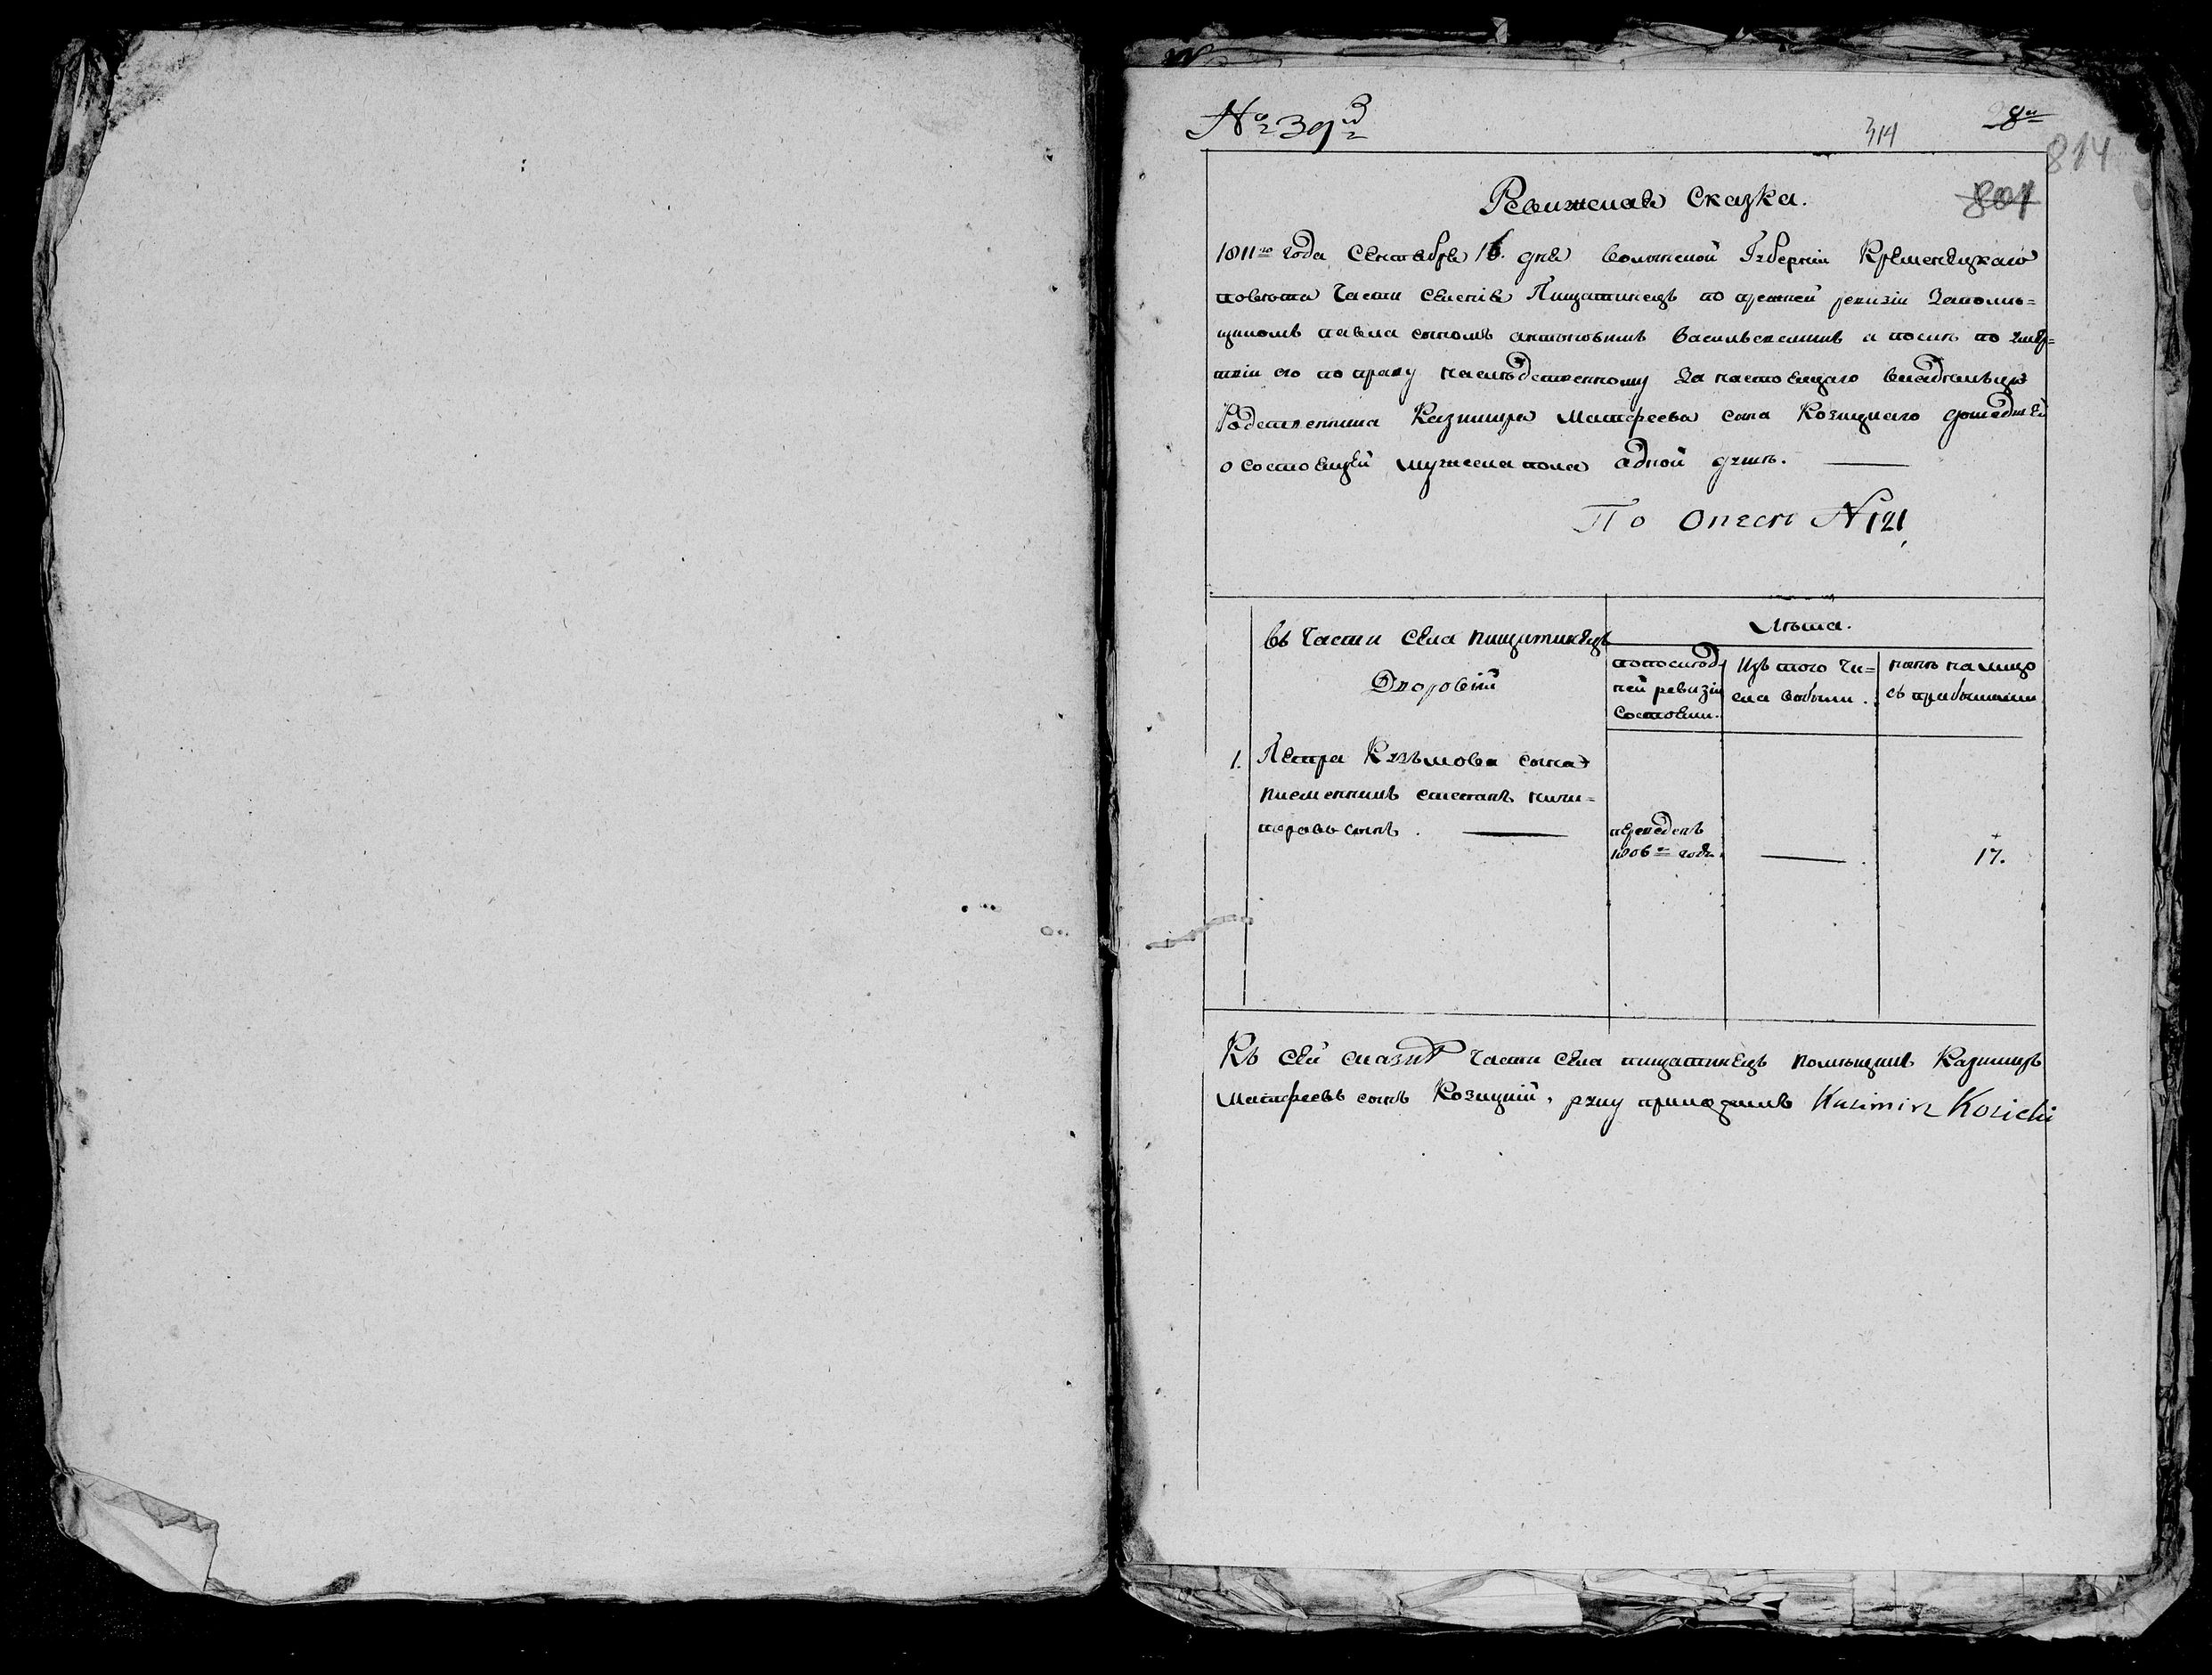 № 39
314
28
814
801
Ревижская Сказка.
1811го года Сентебра 16. дня волынской Губерніи Кременецкаго
повета Части Селенія Пищатинецъ по прежней ревизіи Запомѣ=
щикомъ павла сыномъ антоновимъ Васильевскимъ а посиѣ по Смѣр=
тѣи его по праву наслѣдственному За настоещаго владѣльца
Родственника Казимира Матфеева сына Козицкаго
о состоещей мужеска пола адной душѣ.
По Описи N 121
въ Части Села пищатинецъ
Дворовій
Лѣта.
попослѣд-
ней ревизіи
Состоели.
Изъ того Чи=
сла выбыли.
нынѣ налицо
съ прибылыми
1. Пѣтра Кузьмова сына
писменникъ степанъ ничи=
поровъ сынъ.
переведенъ
1806го году
17.
Къ Сей сказкѣ Части Села пищатинецъ помѣщикъ Казимиръ
Матфеевъ сынъ Козицкій, руку приложилъ Kazimirz Kozicki